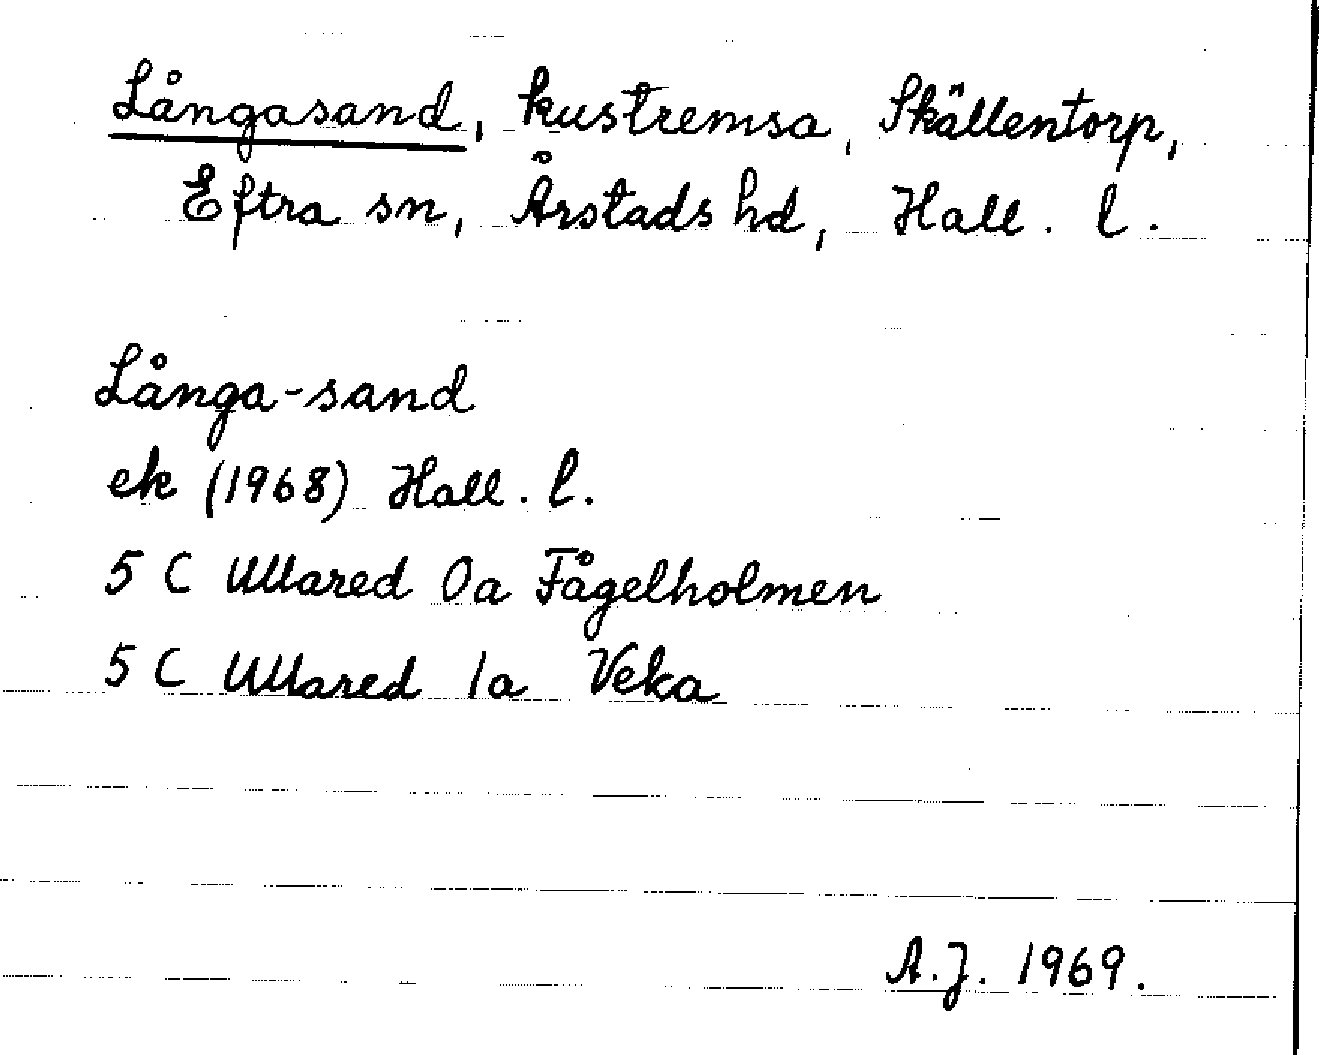 Långasand, kustremsa, Skällentorp,
Eftra sn, Årstads hd, Hall. l.
Långa-sand
ek (1968) Hall. l.
5 C Ullared 0a Fågelholmen
5 C Ullared 1a Veka
A.J. 1969.